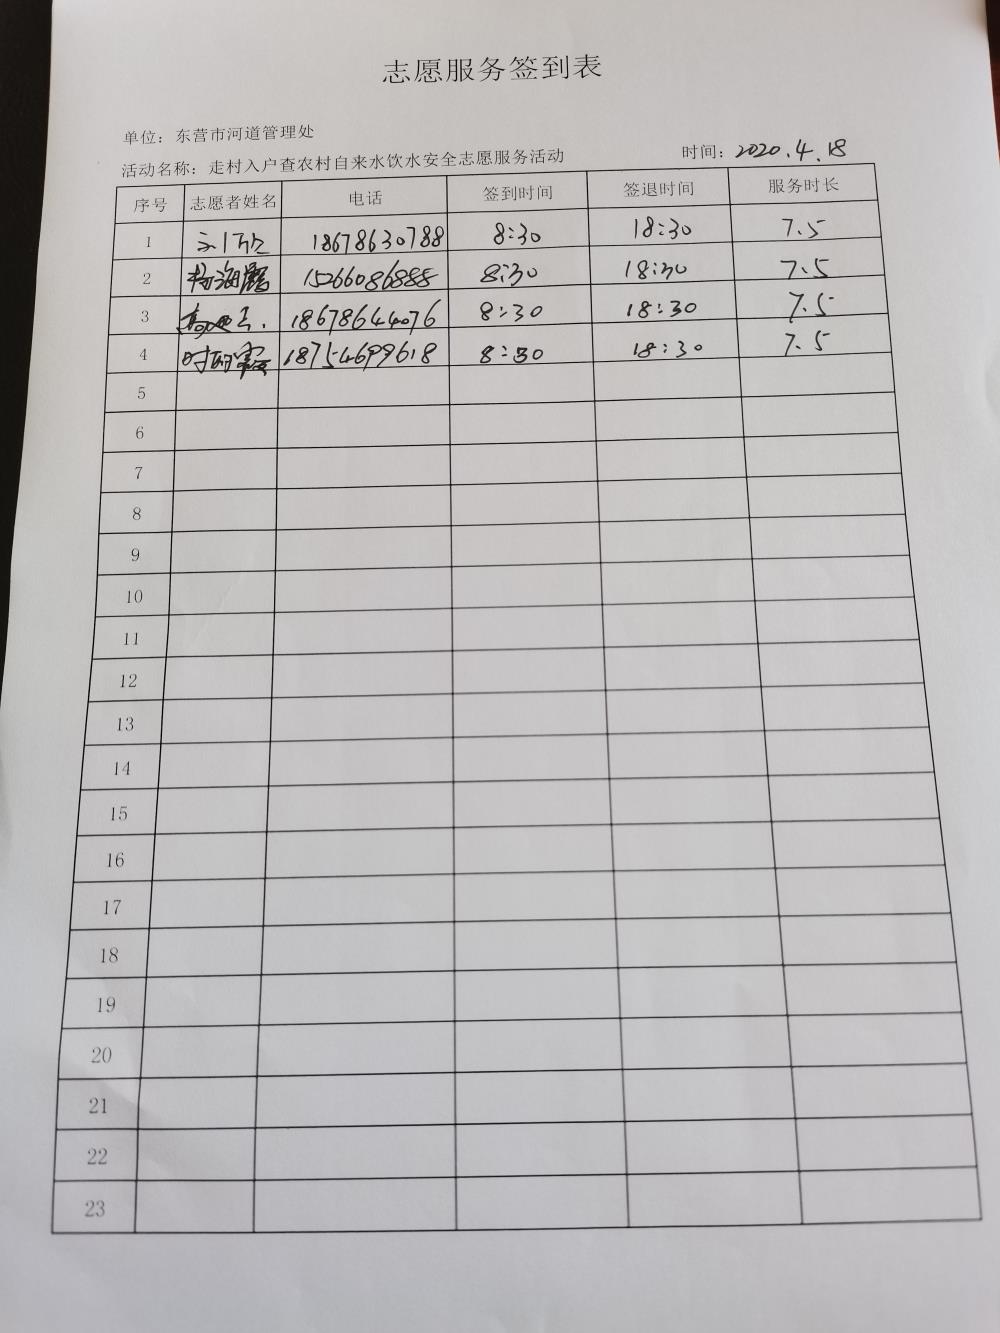 志愿服务签到表
单位：东营市河道管理处
活动名称：走村入户查农村自来水饮水安全志愿服务活动 时间：2020.4.18
序号 志愿者姓名 电话 签到时间 签退时间 服务时长
1 刘欣 18678630788 8:30 18:30 7.5
2 杨海霞 15266086888 8:30 18:30 7.5
3 18678644076 8:30 18:30 7.5
4 时明霞 18754699618 8:30 18:30 7.5
5
6
7
8
9
10
11
12
13
14
15
16
17
18
19
20
21
22
23